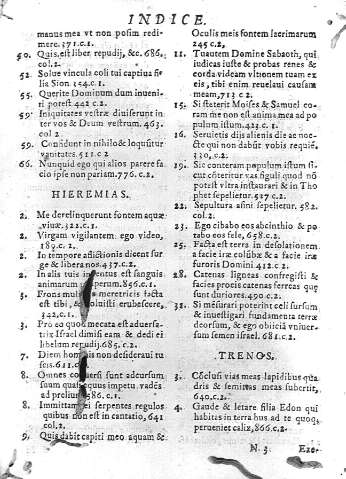 INDICE.
manus mea vt non posim redi-
mere.371.c.1.
50. Quis est liber repudij, &c. 686.
col.2
52. Solue vincula coli tui captiua fi-
lia Sion. 354.c.1.
55. Querite Dominum dum inueni-
ri potest 442 c.2.
59. Iniquitates vestræ diuiserunt in-
ter vos & Deum vestrum. 463.
col 2
59. Confidunt in nihilo & loquūtur
vanitates. 511 c.2
66. Nunquid ego qui alios parere fa-
cio ipse non pariam. 776. c.2.
HIEREMIAS.
2. Me derelinquerunt fontem aquæ
viuæ. 322.c.1.
2. Virgam vigilantem ego video,
189. c.2.
2. In tempore adflictionis dicent sur
ge & libera nos. 437.c.2.
2. In alis tuis inuentus est sanguis
animarum 856.c.1.
3. Frons mulieris meretricis facta
est tibi, & noluisti erubescere,
342.c.1.
3. Pro eo quod mecata est aduersa-
trix Israel dimisi eam & dedi ei
libellum repudij. 685. c.2.
7. Diem hominis non desideraui tu
scis. 611.
8. Omnes conuersi sunt adcursum
suum quasi equus impetu vadēs
ad prelium 586.c.1.
8. Immittam ei serpentes regulos
quibus non est in cantatio, 641
col.2.
9. Quis dabit capiti meo aquam &
Oculis meis fontem lacrimarum
245 c.2,
11. Tu autem Domine Sabaoth, qui
iudicas iuste & probas renes &
corda videam vltionem tuam ex
eis, tibi enim reuelaui causam
meam, 713 c.2.
15. Si steterit Moises & Samuel co-
ram me non est anima mea ad po
pulum istum. 432.c.1.
16. Seruietis diis alienis die ac no-
cte qui non dabūt vobis requiē.
330, c.2.
19. Sic conteram populum istum si-
cut cōteritur vas figuli quod nō
potest vltra instaurari & in Tho
phet sepelietur. 527 c.2.
22. Sepultura asini sepelietur. 582.
col.2.
23. Ego cibabo eos abcinthio & po
tabo eos fele, 658.c.2.
25. Facta est terra in desolationem
a facie iræ columbæ & a facie iræ
furoris Domini 412.c.2.
28. Catenas ligneas confregisti &
facies procis catenas ferreas quę
sunt duriores. 490 c.2.
31. Si mēsurari poterint celi sursum
& inuestigari fundamenta terræ
deorsum, & ego obiiciā vniuer-
sum semen israel. 681.c.2.
TRENOS.
3. Cōclusi vias meas lapidibus qua
dris & semitas meas subertit,
640.c.2.
4. Gaude & letare filia Edon qui
habitas in terra hus ad te quoq;
perueniet calix, 866.c.2.
N 3 Eze-